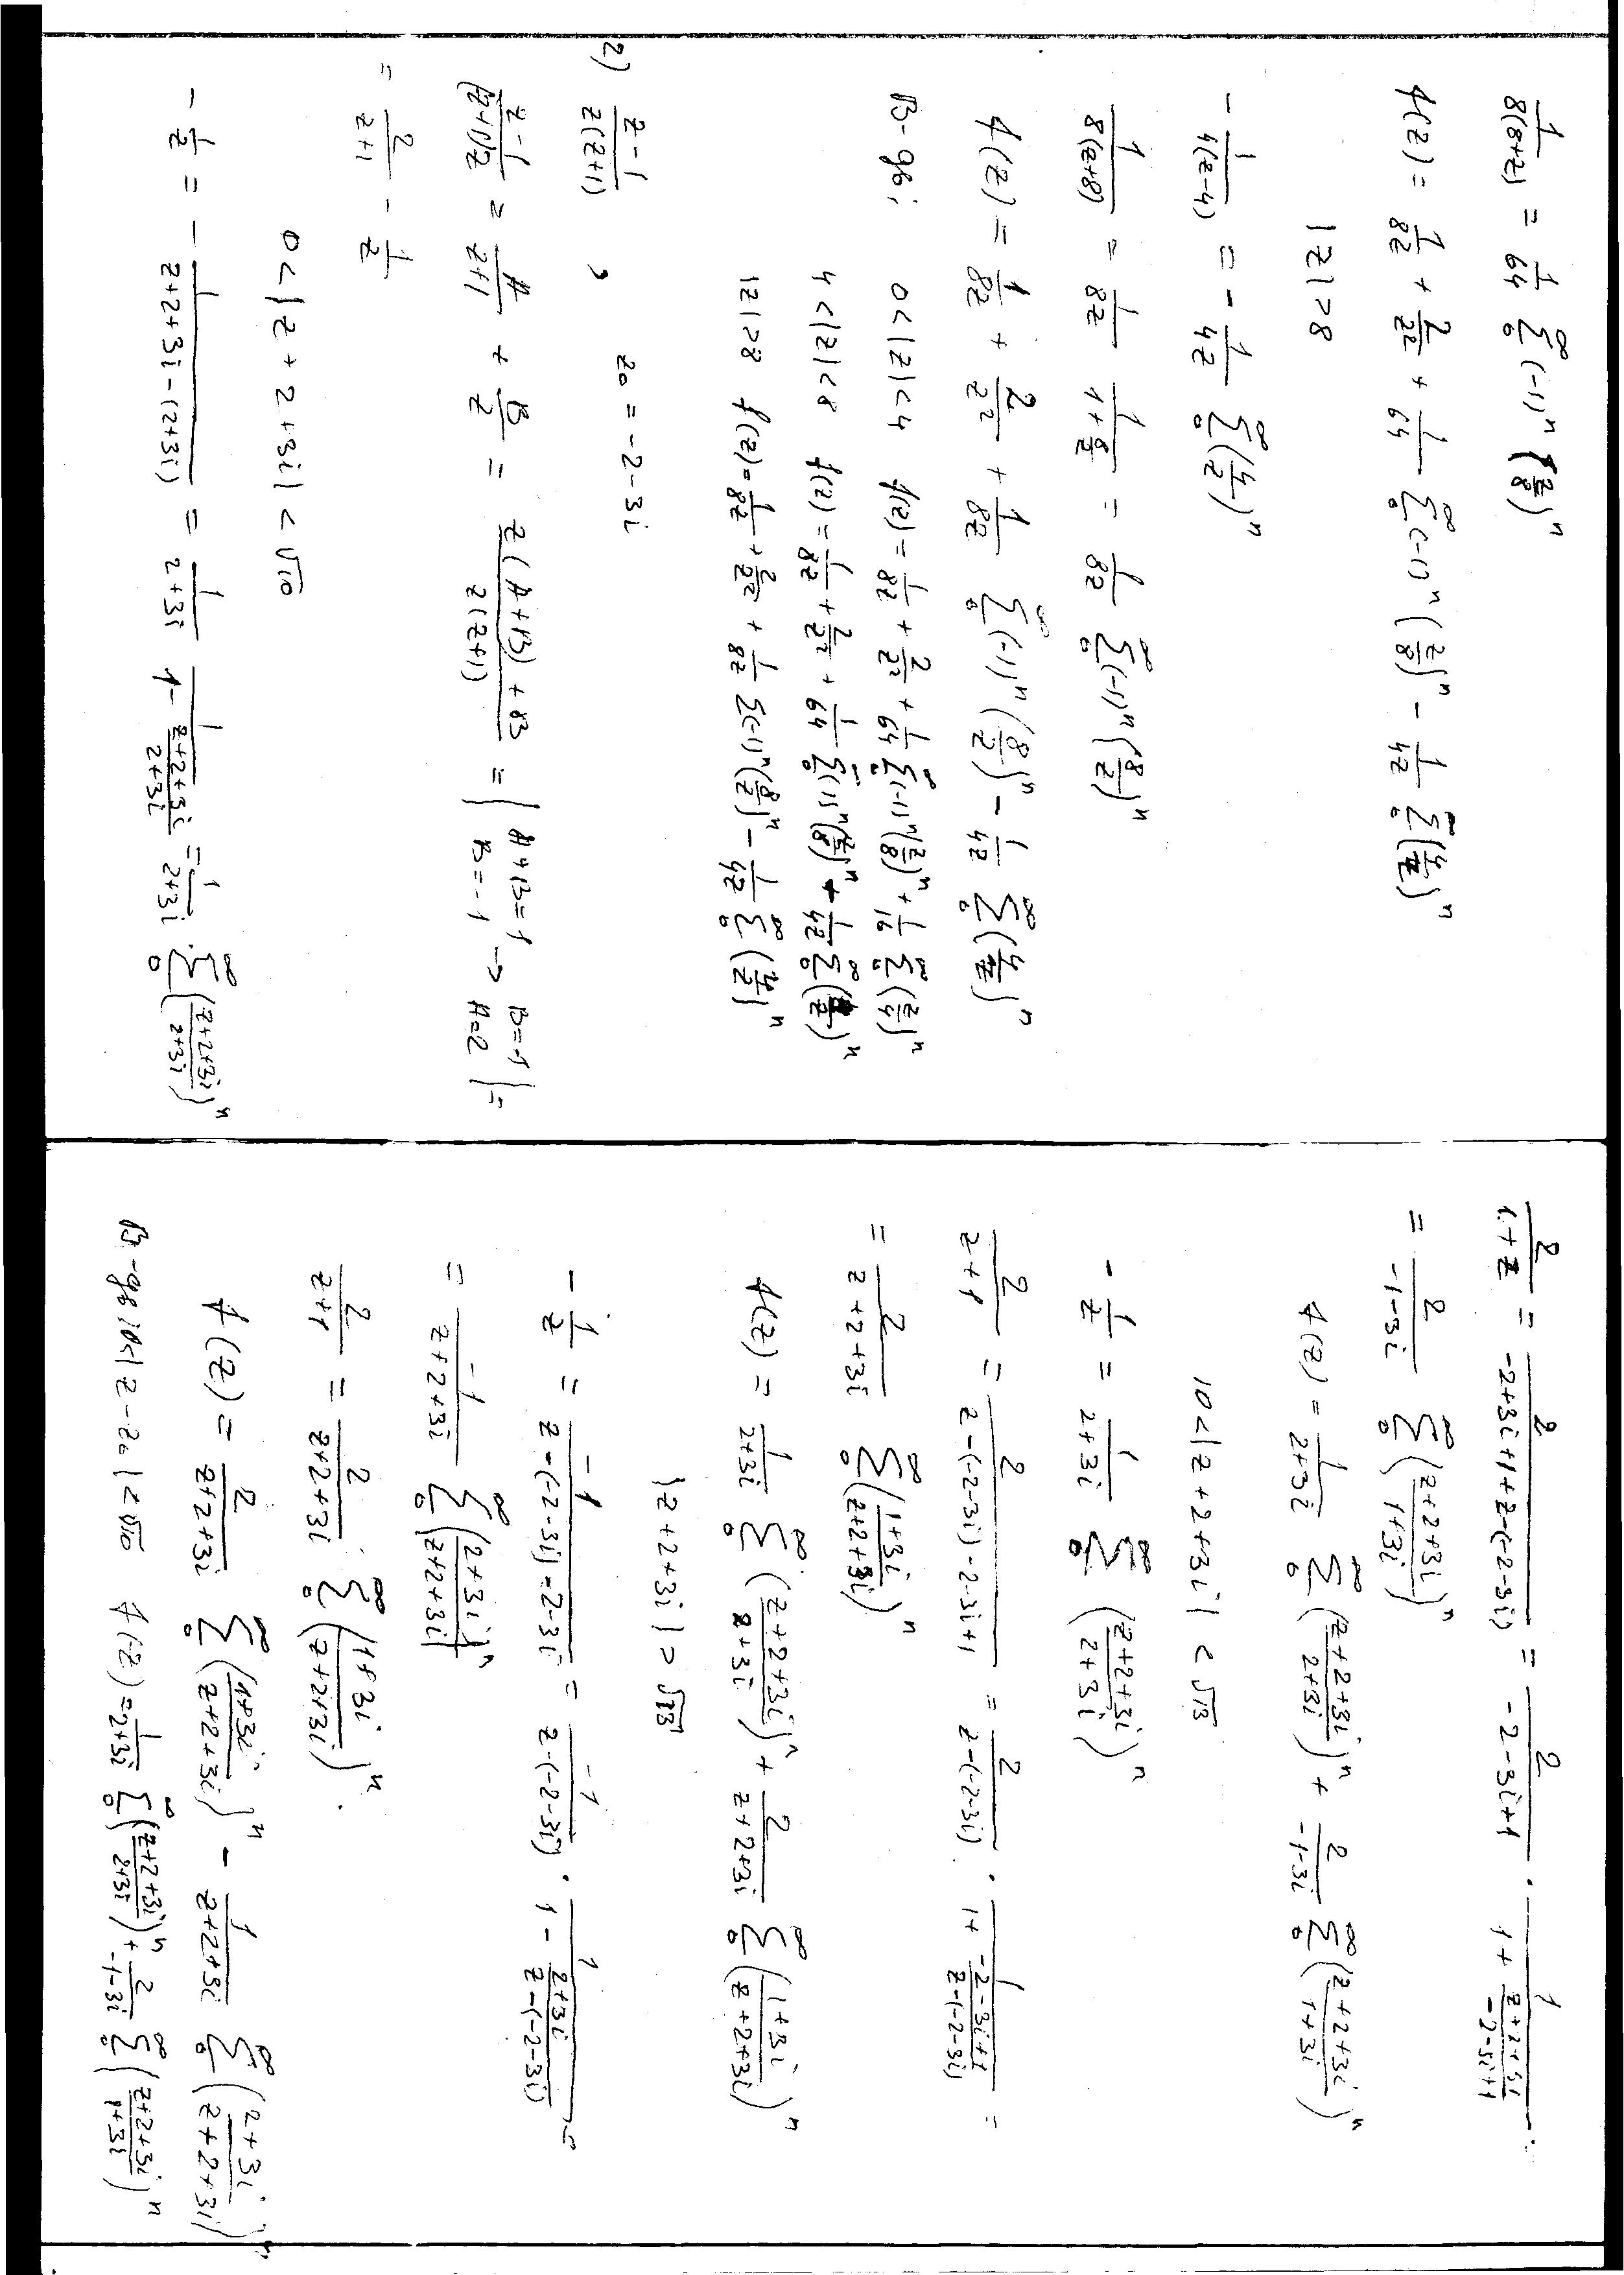 1/(8(8+z)) = 1/64 ∑₀^∞ (-1)ⁿ (z/8)ⁿ
f(z) = 1/(8z) + 2/z² + 1/64 ∑₀^∞ (-1)ⁿ (z/8)ⁿ - 1/(4z) ∑₀^∞ (4/z)ⁿ
|z| > 8
- 1/(4(z-4)) = - 1/(4z) ∑₀^∞ (4/z)ⁿ
1/(8(z+8)) = 1/(8z) 1/(1+8/z) = 1/(8z) ∑₀^∞ (-1)ⁿ (8/z)ⁿ
f(z) = 1/(8z) + 2/z² + 1/(8z) ∑₀^∞ (-1)ⁿ (8/z)ⁿ - 1/(4z) ∑₀^∞ (4/z)ⁿ
0 < |z| < 4 f(z) = 1/(8z) + 2/z² + 1/64 ∑₀^∞ (-1)ⁿ (z/8)ⁿ + 1/16 ∑₀^∞ (z/4)ⁿ
4 < |z| < 8 f(z) = 1/(8z) + 2/z² + 1/64 ∑₀^∞ (-1)ⁿ (z/8)ⁿ + 1/(4z) ∑₀^∞ (4/z)ⁿ
|z| > 8 f(z) = 1/(8z) + 2/z² + 1/(8z) ∑ (-1)ⁿ (8/z)ⁿ - 1/(4z) ∑₀^∞ (4/z)ⁿ
2) (z-1)/(z(z+1)) , z₀ = -2-3i
(z-1)/((z+1)z) = A/(z+1) + B/z = (z(A+B)+B)/(z(z+1)) = | A+B=1 B=-1 → B=-1 A=2 | =
= 2/(z+1) - 1/z
0 < |z+2+3i| < √10
- 1/z = - 1/(z+2+3i-(2+3i)) = 1/(2+3i) 1/(1 - (z+2+3i)/(2+3i)) = 1/(2+3i) · ∑₀^∞ ((z+2+3i)/(2+3i))ⁿ
2/(1+z) = 2/(-2+3i+1+z-(-2-3i)) = 2/(-2-3i+1) · 1/(1 + (z+2+3i)/(-2-3i+1)) =
= 2/(-1-3i) ∑₀^∞ ((z+2+3i)/(1+3i))ⁿ
f(z) = 1/(2+3i) ∑₀^∞ ((z+2+3i)/(2+3i))ⁿ + 2/(-1-3i) ∑₀^∞ ((z+2+3i)/(1+3i))ⁿ
10 < |z+2+3i| < √13
- 1/z = 1/(2+3i) ∑₀^∞ ((z+2+3i)/(2+3i))ⁿ
2/(z+1) = 2/(z-(-2-3i)-2-3i+1) = 2/(z-(-2-3i)) · 1/(1 + (-2-3i+1)/(z-(-2-3i))) =
= 2/(z+2+3i) ∑₀^∞ ((1+3i)/(z+2+3i))ⁿ
f(z) = 1/(2+3i) ∑₀^∞ ((z+2+3i)/(2+3i))ⁿ + 2/(z+2+3i) ∑₀^∞ ((1+3i)/(z+2+3i))ⁿ
|z+2+3i| > √13
- 1/z = -1/(z-(-2-3i)-2-3i) = -1/(z-(-2-3i)) · 1/(1 - (2+3i)/(z-(-2-3i))) =
= -1/(z+2+3i) ∑₀^∞ ((2+3i)/(z+2+3i))ⁿ
2/(z+1) = 2/(z+2+3i) ∑₀^∞ ((1+3i)/(z+2+3i))ⁿ.
f(z) = 2/(z+2+3i) ∑₀^∞ ((1+3i)/(z+2+3i))ⁿ - 1/(z+2+3i) ∑₀^∞ ((2+3i)/(z+2+3i))ⁿ
0 < |z-z₀| < √10 f(z) = 1/(2+3i) ∑₀^∞ ((z+2+3i)/(2+3i))ⁿ + 2/(-1-3i) ∑₀^∞ ((z+2+3i)/(1+3i))ⁿ